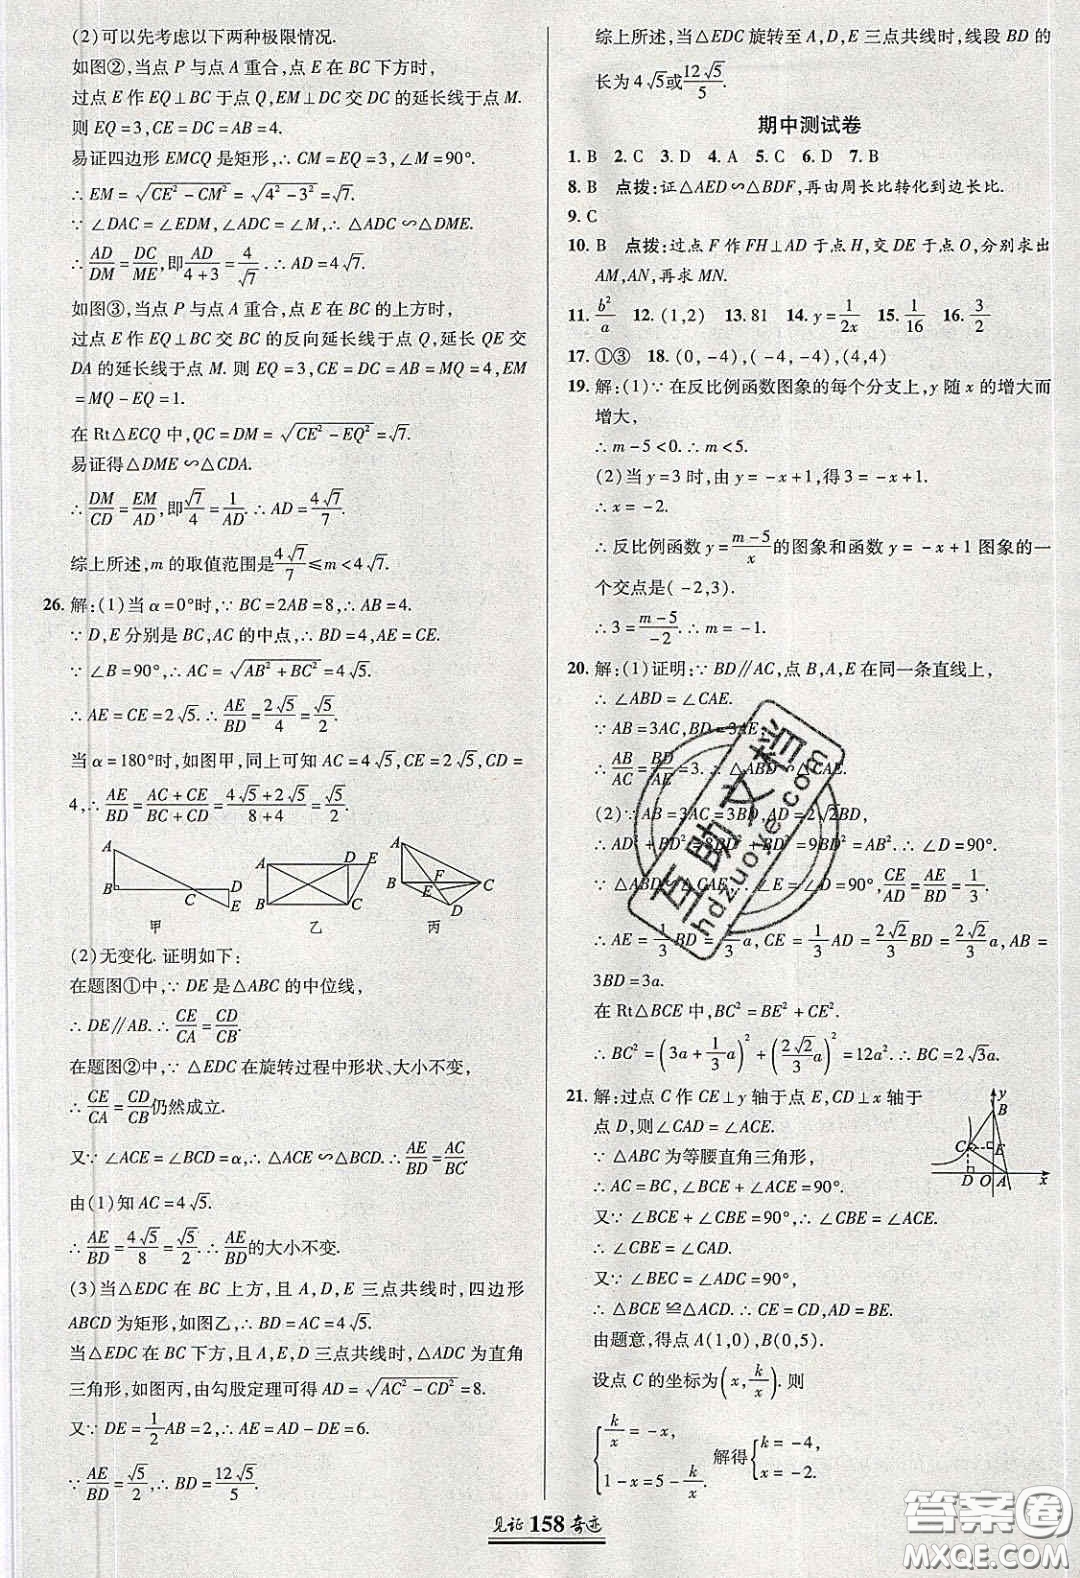 (2)可以先考虑以下两种极限情况.
如图②,当点 P 与点 A 重合,点 E 在 BC 下方时,
过点 E 作 EQ⊥BC 于点 Q,EM⊥DC 交 DC 的延长线于点 M.
则 EQ=3,CE=DC=AB=4.
易证四边形 EMCQ 是矩形,∴CM=EQ=3,∠M=90°.
∴EM=√(CE²-CM²)=√(4²-3²)=√7.
∵∠DAC=∠EDM,∠ADC=∠M,∴△ADC∽△DME.
∴AD/DM=DC/ME,即AD/(4+3)=4/√7.∴AD=4√7.
如图③,当点 P 与点 A 重合,点 E 在 BC 的上方时,
过点 E 作 EQ⊥BC 交 BC 的反向延长线于点 Q,延长 QE 交
DA 的延长线于点 M. 则 EQ=3,CE=DC=AB=MQ=4,EM
=MQ-EQ=1.
在 Rt△ECQ 中,QC=DM=√(CE²-EQ²)=√7.
易证得△DME∽△CDA.
∴DM/CD=EM/AD,即√7/4=1/AD.∴AD=4√7/7.
综上所述,m 的取值范围是4√7/7≤m<4√7.
26. 解:(1)当 α=0°时,∵BC=2AB=8,∴AB=4.
∵D,E 分别是 BC,AC 的中点,∴BD=4,AE=CE.
∵∠B=90°,∴AC=√(AB²+BC²)=4√5.
∴AE=CE=2√5.∴AE/BD=2√5/4=√5/2.
当 α=180°时,如图甲,同上可知 AC=4√5,CE=2√5,CD=
4,∴AE/BD=(AC+CE)/(BC+CD)=(4√5+2√5)/(8+4)=√5/2.
A B C D E 甲
A B C D E 乙
A B C D E F 丙
(2)无变化. 证明如下:
在题图①中,∵DE 是△ABC 的中位线,
∴DE∥AB.∴CE/CA=CD/CB.
在题图②中,∵△EDC 在旋转过程中形状、大小不变,
∴CE/CA=CD/CB仍然成立.
又∵∠ACE=∠BCD=α,∴△ACE∽△BCD.∴AE/BD=AC/BC.
由(1)知 AC=4√5.
∴AE/BD=4√5/8=√5/2.∴AE/BD的大小不变.
(3)当△EDC 在 BC 上方,且 A,D,E 三点共线时,四边形
ABCD 为矩形,如图乙,∴BD=AC=4√5.
当△EDC 在 BC 下方,且 A,E,D 三点共线时,△ADC 为直角
三角形,如图丙,由勾股定理可得 AD=√(AC²-CD²)=8.
又∵DE=1/2AB=2,∴AE=AD-DE=6.
∵AE/BD=√5/2,∴BD=12√5/5.
综上所述,当△EDC 旋转至 A,D,E 三点共线时,线段 BD 的
长为 4√5或12√5/5.
期中测试卷
1. B 2. C 3. D 4. A 5. C 6. D 7. B
8. B 点拨:证△AED∽△BDF,再由周长比转化到边长比.
9. C
10. B 点拨:过点 F 作 FH⊥AD 于点 H,交 DE 于点 O,分别求出
AM,AN,再求 MN.
11. b²/a 12. (1,2) 13. 81 14. y=1/2x 15. 1/16 16. 3/2
17. ①③ 18. (0,-4),(-4,-4),(4,4)
19. 解:(1)∵在反比例函数图象的每个分支上,y 随 x 的增大而
增大,
∴m-5<0.∴m<5.
(2)当 y=3 时,由 y=-x+1,得 3=-x+1.
∴x=-2.
∴反比例函数 y=(m-5)/x的图象和函数 y=-x+1 图象的一
个交点是(-2,3).
∴3=(m-5)/-2.∴m=-1.
20. 解:(1)证明:∵BD∥AC,点 B,A,E 在同一条直线上,
∴∠ABD=∠CAE.
∵AB=3AC,BD=3AE,
∴AB/AC=BD/AE=3.∴△ABD∽△CAE.
(2)∵AB=3AC=3BD,AD=2√2BD,
∴AD²+BD²=8BD²+BD²=9BD²=AB².∴∠D=90°.
∵△ABD∽△CAE,∴∠E=∠D=90°,CE/AD=AE/BD=1/3.
∴AE=1/3BD=1/3a,CE=1/3AD=2√2/3BD=2√2/3a,AB=
3BD=3a.
在 Rt△BCE 中,BC²=BE²+CE².
∴BC²=(3a+1/3a)²+(2√2/3a)²=12a².∴BC=2√3a.
21. 解:过点 C 作 CE⊥y 轴于点 E,CD⊥x 轴于
点 D,则∠CAD=∠ACE.
∵△ABC 为等腰直角三角形,
∴AC=BC,∠BCE+∠ACE=90°.
又∵∠BCE+∠CBE=90°,∴∠CBE=∠ACE.
∴∠CBE=∠CAD.
又∵∠BEC=∠ADC=90°,
∴△BCE≌△ACD.∴CE=CD,AD=BE.
由题意,得点 A(1,0),B(0,5).
设点 C 的坐标为(x,k/x). 则
{k/x=-x,
1-x=5-k/x. 解得{k=-4,
x=-2.
y B C E D O A x
见证158奇迹
互助文档
hdzuoye.com
答案圈
MXQE.COM